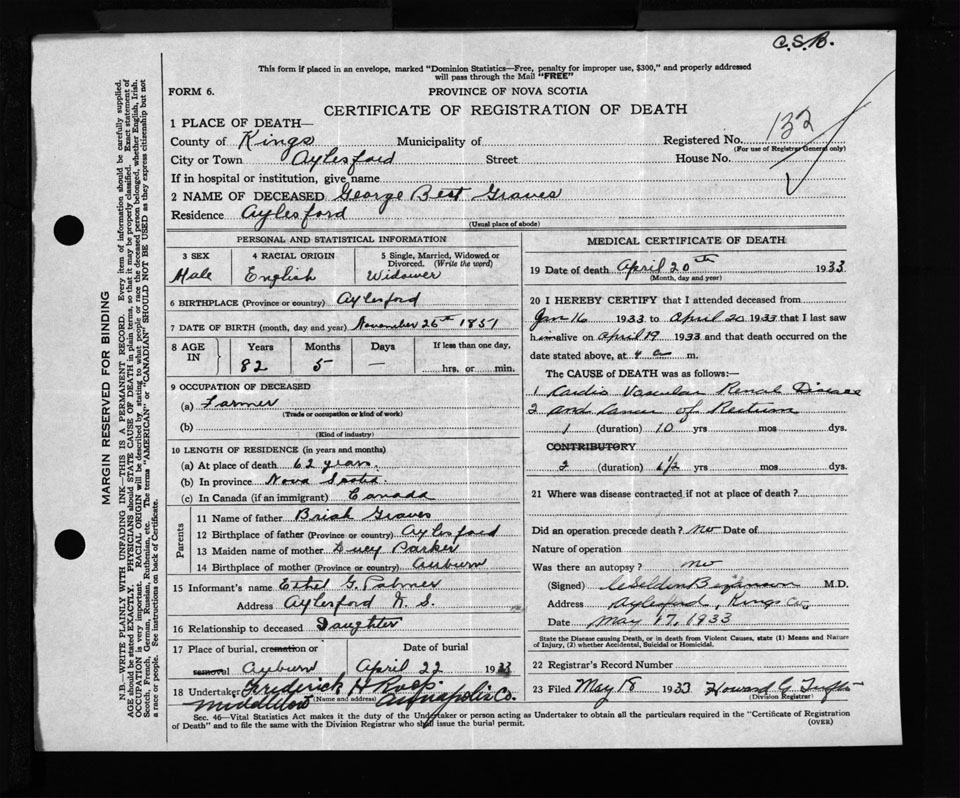 C.S.B.
This form if placed in an envelope, marked "Dominion Statistics—Free, penalty for improper use, $300," and properly addressed
will pass through the Mail "FREE"
FORM 6.
PROVINCE OF NOVA SCOTIA
CERTIFICATE OF REGISTRATION OF DEATH
1 PLACE OF DEATH—
County of Kings Municipality of Registered No. 132
(For use of Registrar General only)
City or Town Aylesford Street House No.
If in hospital or institution, give name
2 NAME OF DECEASED George Best Graves
Residence Aylesford
(Usual place of abode)
PERSONAL AND STATISTICAL INFORMATION
3 SEX 4 RACIAL ORIGIN 5 Single, Married, Widowed or
Divorced. (Write the word)
Male English Widower
6 BIRTHPLACE (Province or country) Aylesford
7 DATE OF BIRTH (month, day and year) November 26th 1851
8 AGE IN Years Months Days If less than one day,
82 5 — hrs. or min.
9 OCCUPATION OF DECEASED
(a) Farmer
(Trade or occupation or kind of work)
(b)
(Kind of industry)
10 LENGTH OF RESIDENCE (in years and months)
(a) At place of death 62 years.
(b) In province Nova Scotia
(c) In Canada (if an immigrant) Canada
Parents
11 Name of father Graves
12 Birthplace of father (Province or country) Aylesford
13 Maiden name of mother Lucy Parker
14 Birthplace of mother (Province or country) Auburn
15 Informant's name Ethel G. Palmer
Address Aylesford N. S.
16 Relationship to deceased Daughter
17 Place of burial, cremation or Date of burial
removal Auburn April 22 1933
18 Undertaker Frederick H
(Name and address)
Middleton Annapolis Co.
MEDICAL CERTIFICATE OF DEATH
19 Date of death April 20th 1933
(Month, day and year)
20 I HEREBY CERTIFY that I attended deceased from
Jan 16 1933 to April 20 1933 that I last saw
him alive on April 19 1933 and that death occurred on the
date stated above, at 4 a m.
The CAUSE OF DEATH was as follows:—
1 Cardio Vascular Renal Disease
2 and Cancer of Rectum
1 (duration) 10 yrs mos dys.
CONTRIBUTORY
2 (duration) 1/2 yrs mos dys.
21 Where was disease contracted if not at place of death?
Did an operation precede death? no Date of
Nature of operation
Was there an autopsy? no
(Signed) Selden Bezanson M.D.
Address Aylesford, Kings Co,
Date May 17, 1933
State the Disease causing Death, or in death from Violent Causes, state (1) Means and Nature
of Injury, (2) whether Accidental, Suicidal or Homicidal.
22 Registrar's Record Number
23 Filed May 18 1933 Howard G Tufts
(Division Registrar)
Sec. 46—Vital Statistics Act makes it the duty of the Undertaker or person acting as Undertaker to obtain all the particulars required in the "Certificate of Registration
of Death" and to file the same with the Division Registrar who shall issue the burial permit.
(OVER)
MARGIN RESERVED FOR BINDING
N.B.—WRITE PLAINLY WITH UNFADING INK—THIS IS A PERMANENT RECORD. Every item of information should be carefully supplied.
AGE should be stated EXACTLY. PHYSICIANS should STATE CAUSE OF DEATH in plain terms, so that it may be properly classified. Exact statement of
OCCUPATION is very important. RACIAL ORIGIN will be described by stating to what people or race the deceased person belonged, whether English, Irish,
Scotch, French, German, Russian, Ruthenian, etc. The terms "AMERICAN" or "CANADIAN" SHOULD NOT BE USED as they express citizenship but not
a race or people. See instructions on back of Certificate.